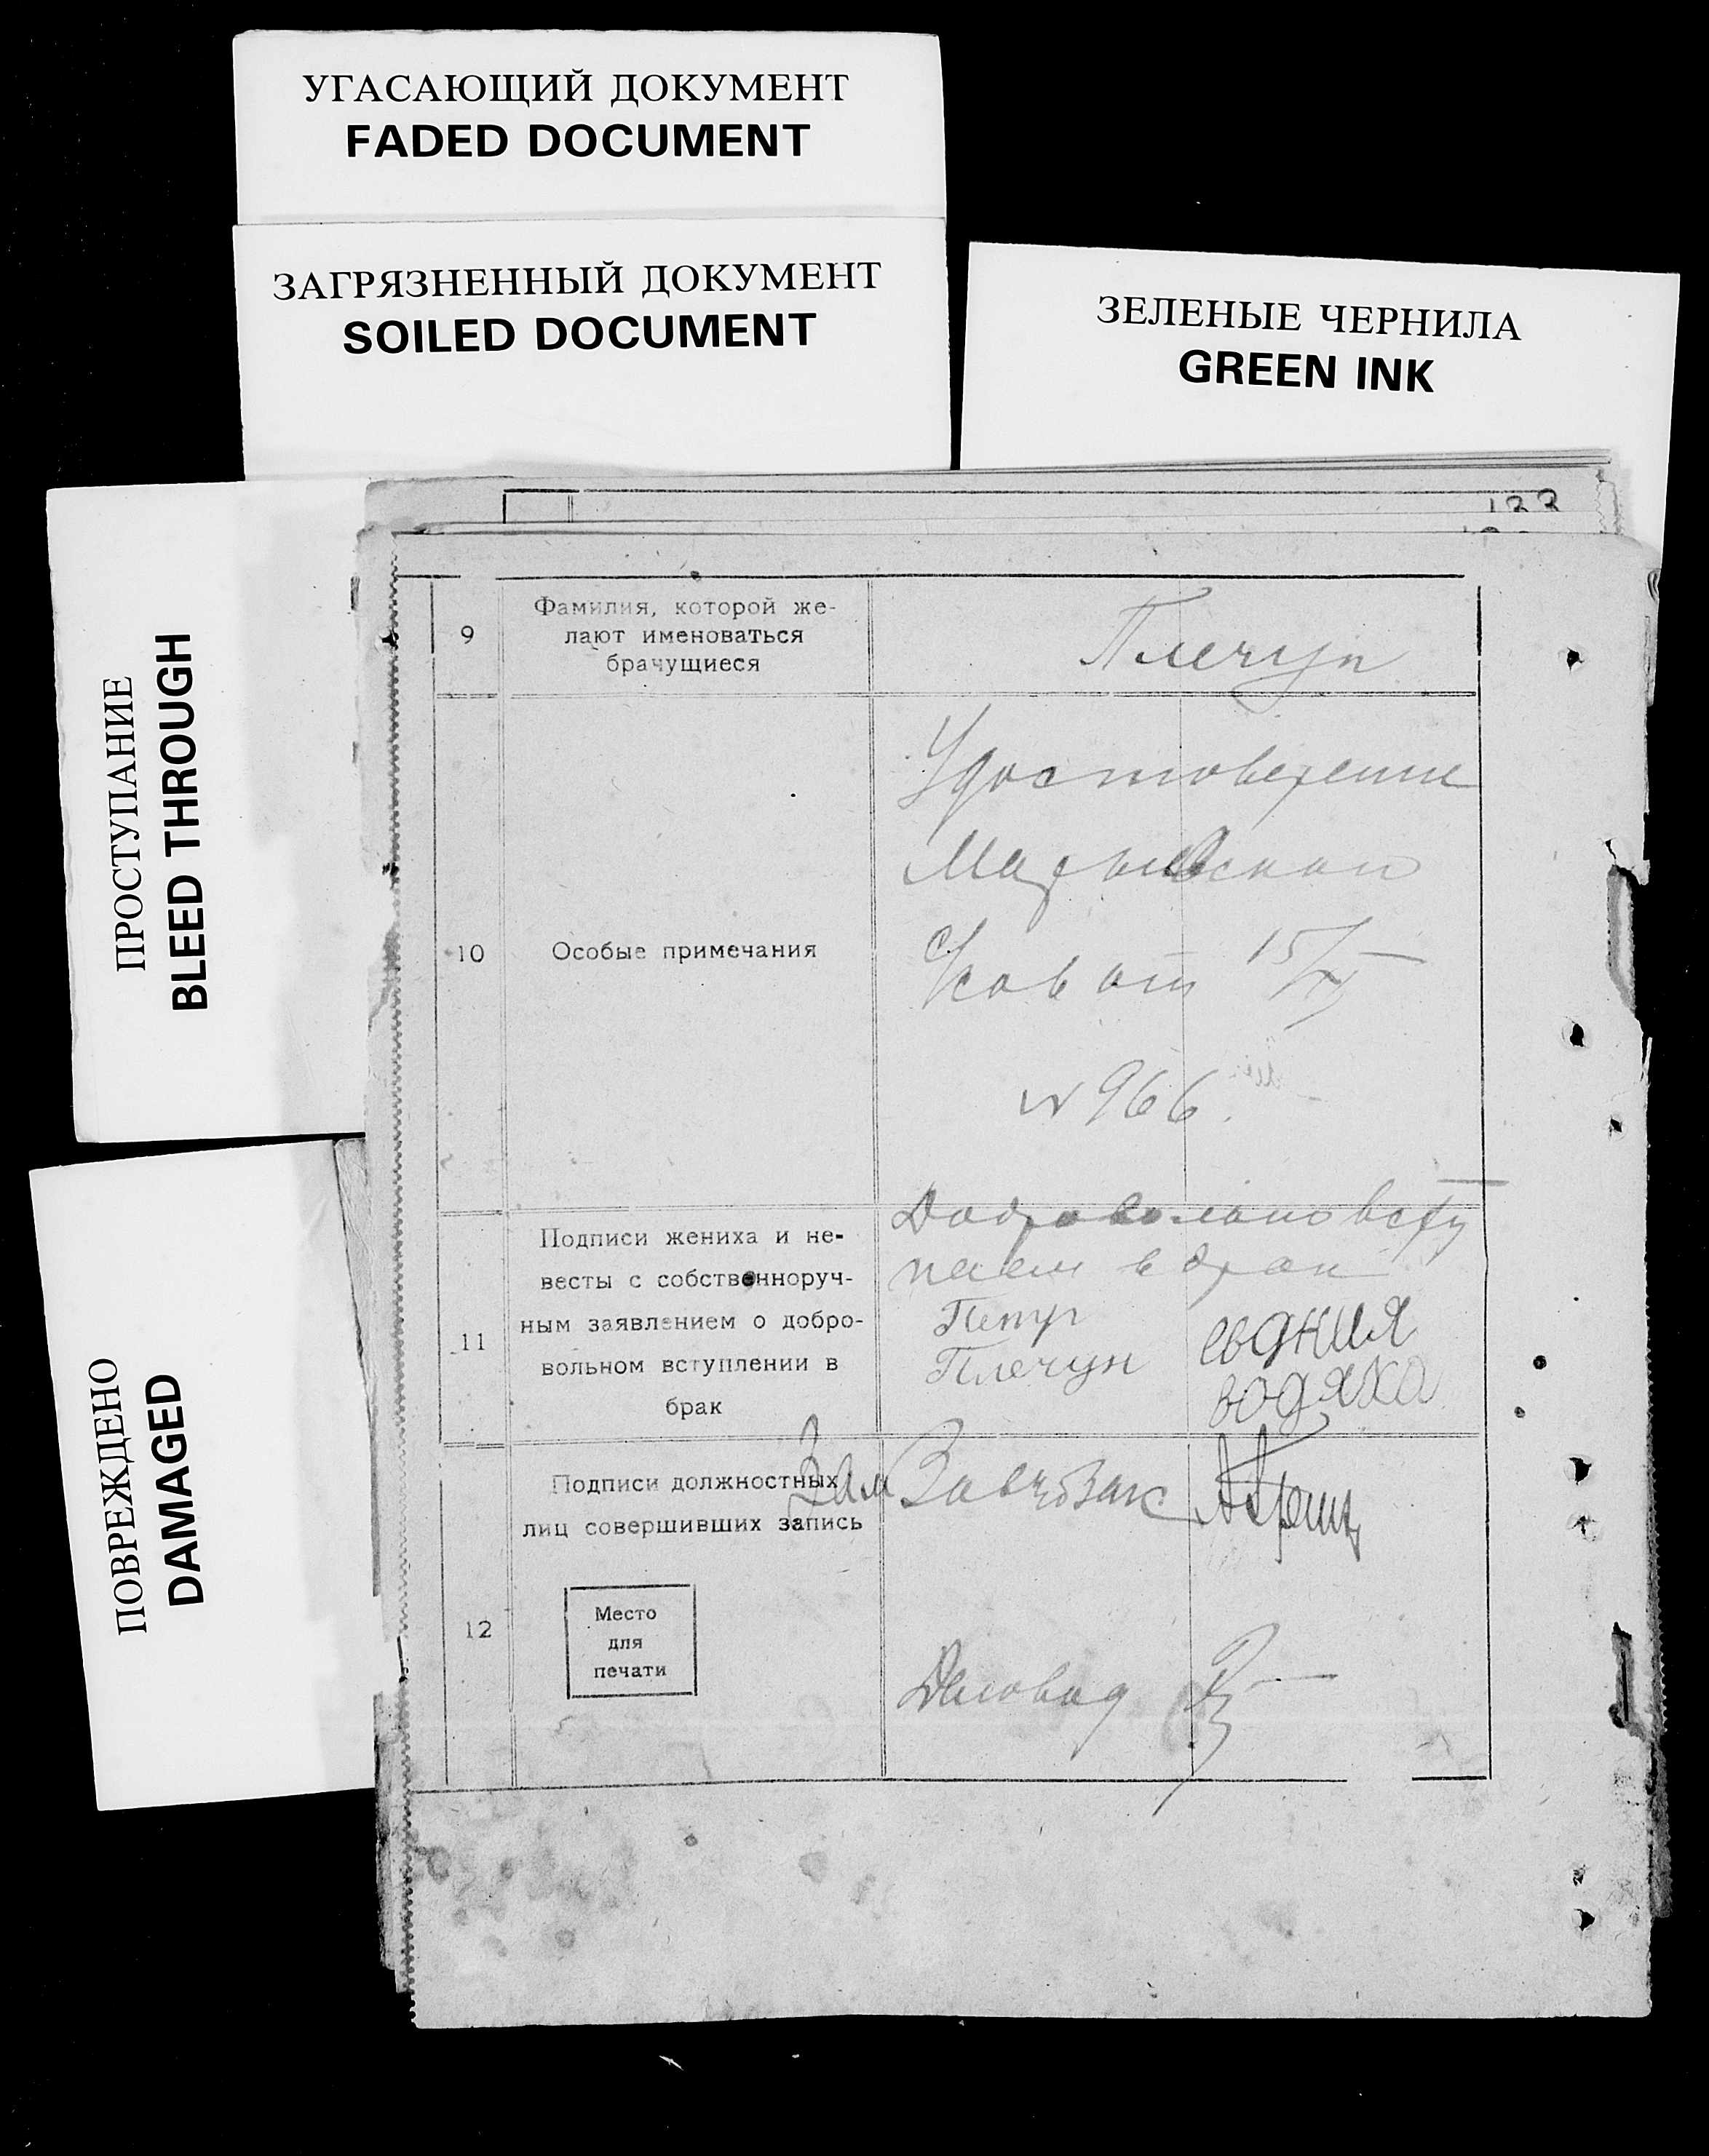 УГАСАЮЩИЙ ДОКУМЕНТ
FADED DOCUMENT
ЗАГРЯЗНЕННЫЙ ДОКУМЕНТ
SOILED DOCUMENT
ЗЕЛЕНЫЕ ЧЕРНИЛА
GREEN INK
ПРОСТУПАНИЕ
BLEED THROUGH
ПОВРЕЖДЕНО
DAMAGED
133
9
Фамилия, которой же-
лают именоваться
брачущиеся
Плечун
10
Особые примечания
Удостоверение
от 15/XI
№ 966.
11
Подписи жениха и не-
весты с собственноруч-
ным заявлением о добро-
вольном вступлении в
брак
Добровольно всту
паем в брак
Петр
Плечун
водяха
12
Подписи должностных
лиц совершивших запись
Зам
Место
для
печати
Деловод